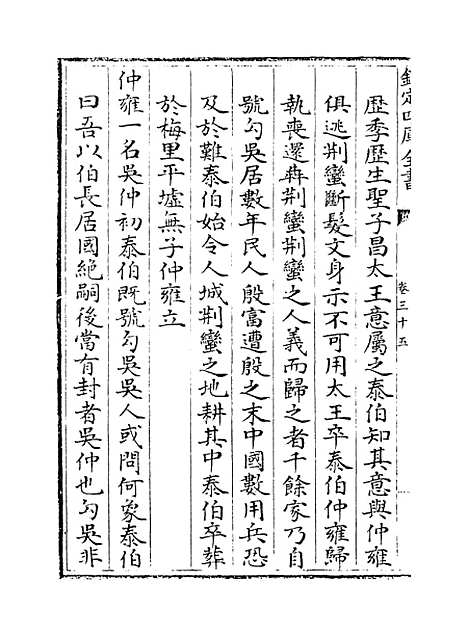 欽定四庫全書
卷三十五
歴季歴生聖子昌太王意屬之泰伯知其意與仲雍
俱逃荆蠻斷髮文身示不可用太王卒泰伯仲雍歸
執喪還犇荆蠻荆蠻之人義而歸之者千餘家乃自
號勾吳居數年民人殷富遭殷之末中國數用兵恐
及於難泰伯始令人城荆蠻之地耕其中泰伯卒葬
於梅里平墟無子仲雍立
仲雍一名吳仲初泰伯既號勾吳吳人或問何象泰伯
曰吾以伯長居國絶嗣後當有封者吳仲也勾吳非